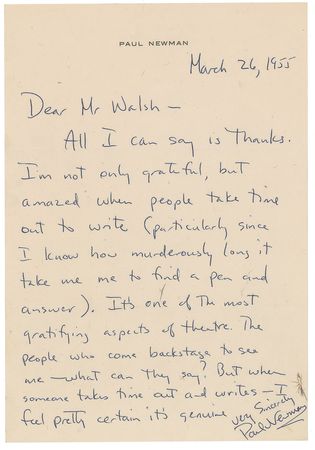 PAUL NEWMAN
March 26, 1955
Dear Mr Walsh –
All I can say is Thanks.
I'm not only grateful, but
amazed when people take time
out to write (particularly since
I know how murderously long it
take me me to find a pen and
answer). It's one of th most
gratifying aspects of theatre. The
people who come backstage to see
me – what can they say? But when
someone takes time out and writes – I
feel pretty certain it's genuine
very sincerely
Paul Newman